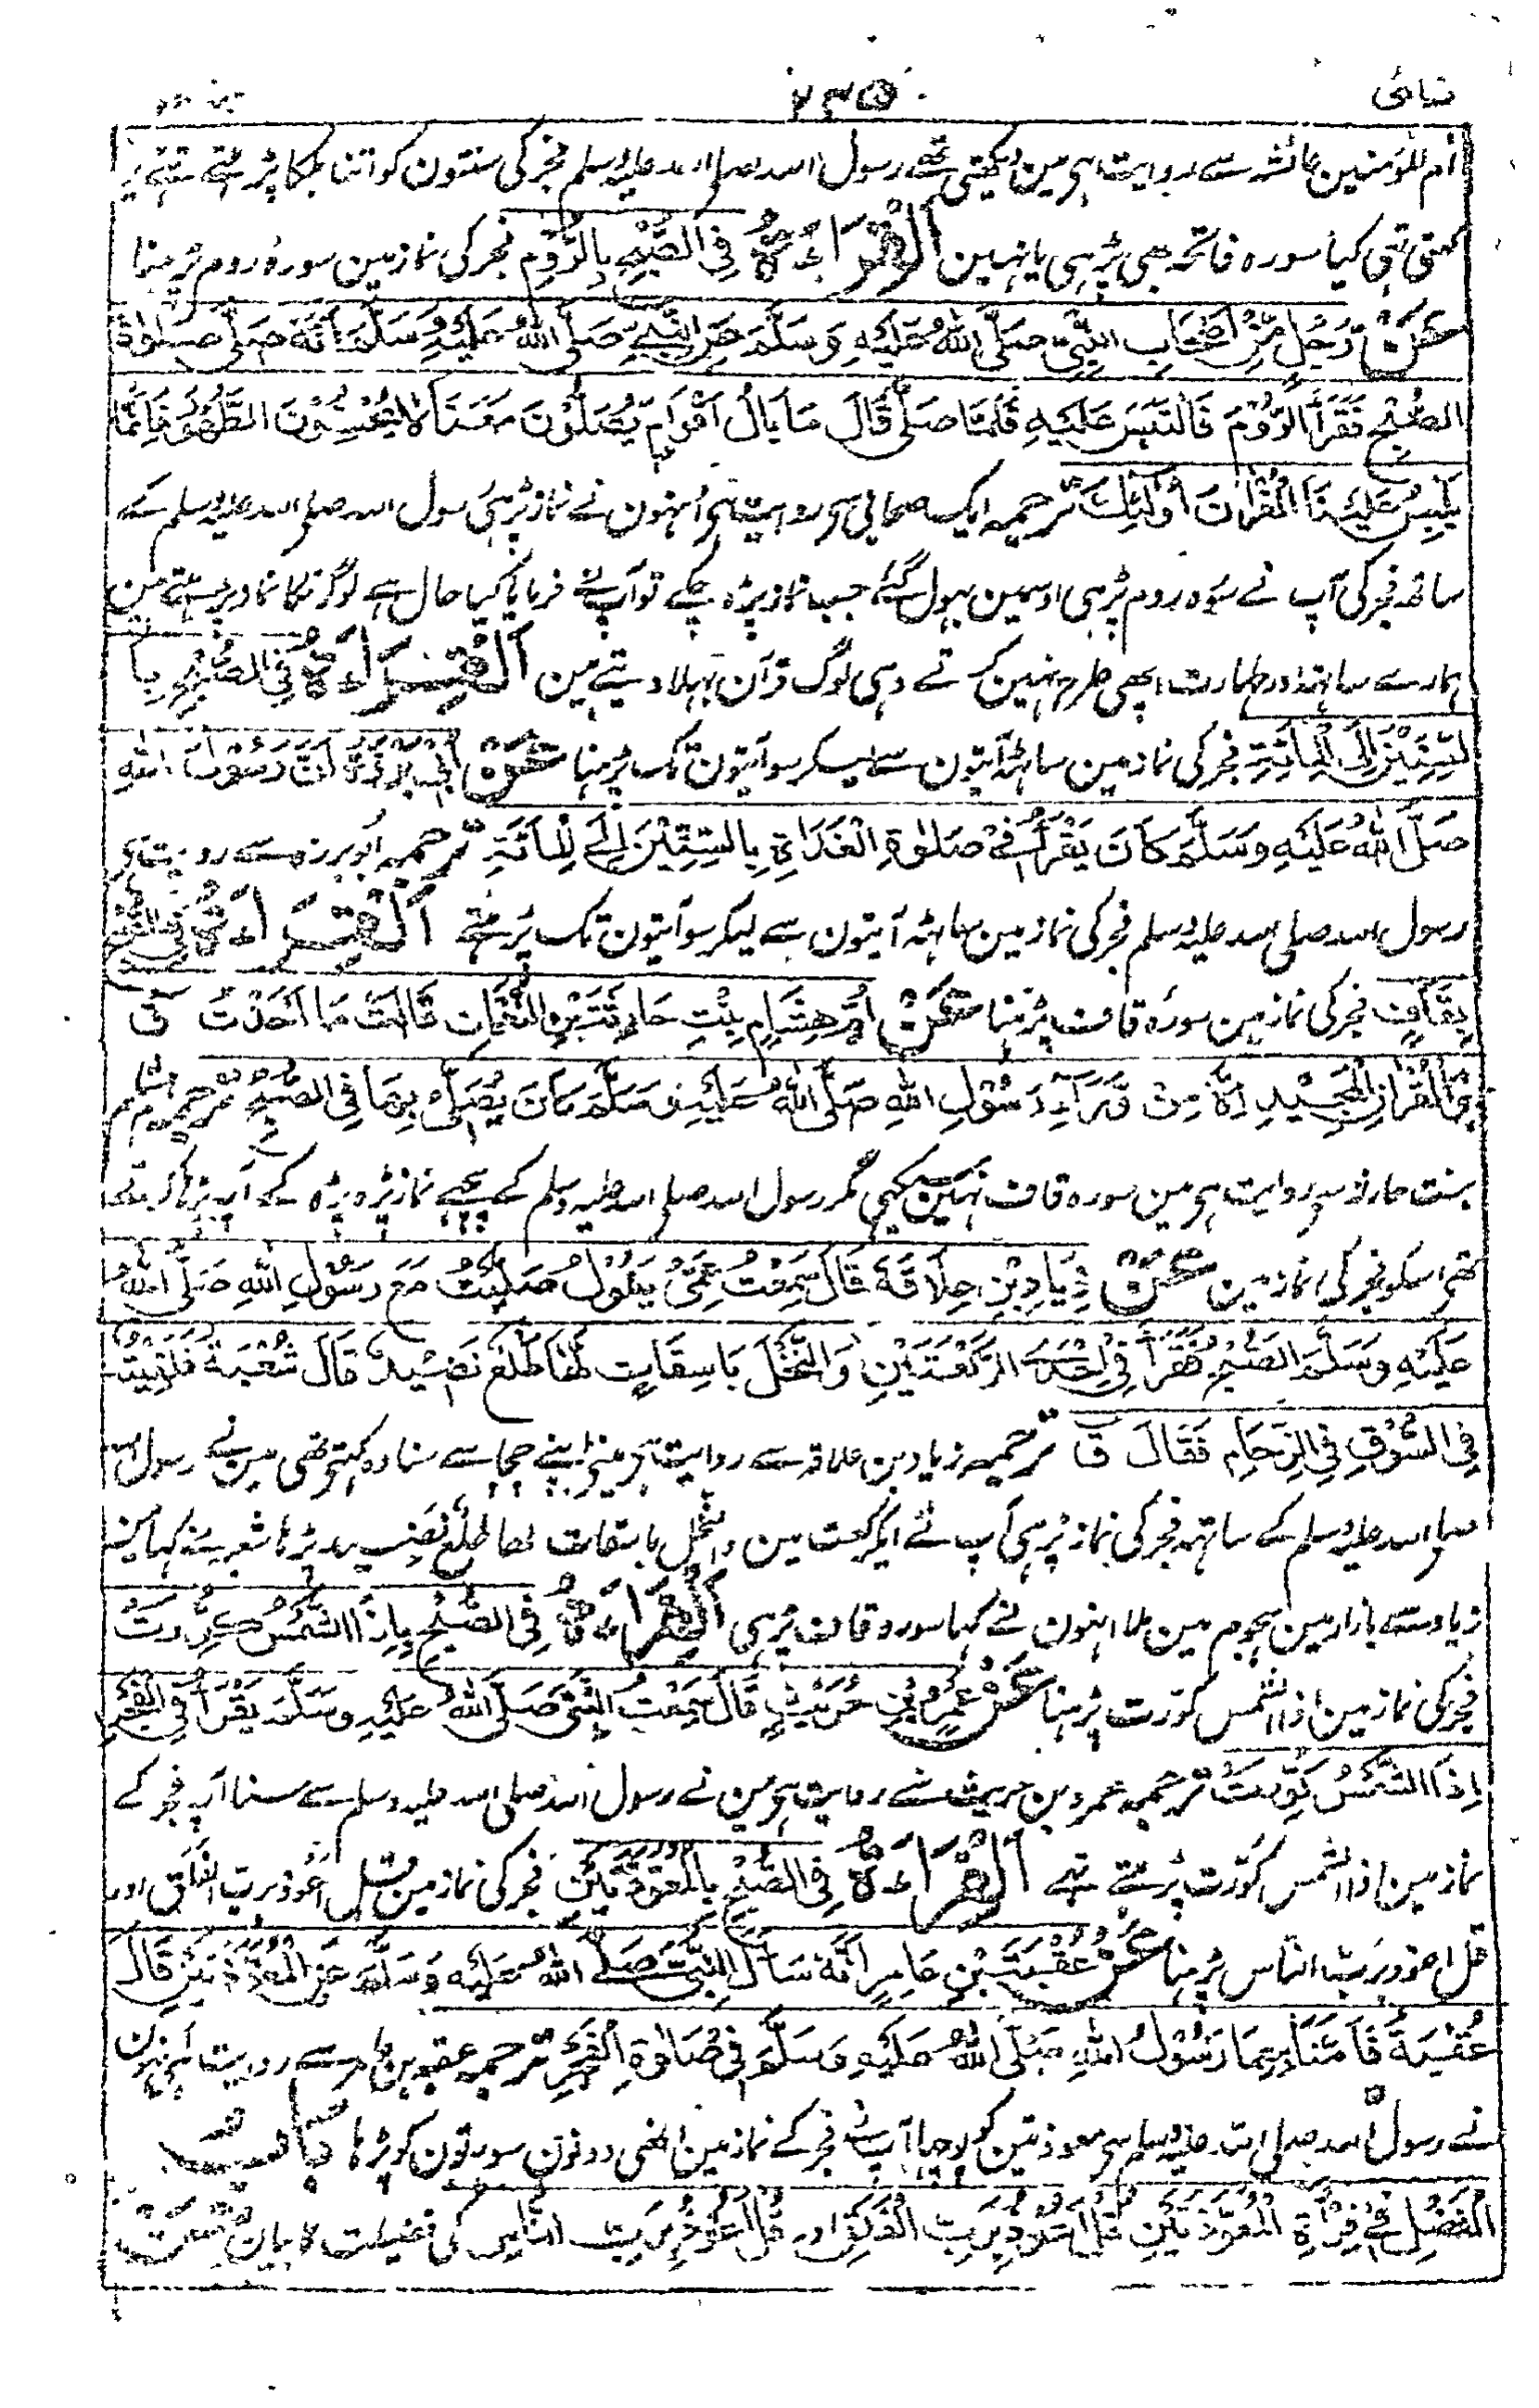 نسائی ۲۳۵
ام المؤمنین عائشہ سے روایت ہی مین دیکھتی تھی رسول اللہ صلی اللہ علیہ وسلم فجر کی سنتون کو اتنا ہلکا پڑہتے تھے
کہتی تھی کیا سورہ فاتحہ بھی پڑہی یا نہین اَلْقِرَاءَةُ فِی الصُّبْحِ بِالرُّوْمِ فجر کی نماز مین سورہ روم پڑہنا
عَنْ رَجُلٍ مِّنْ اَصْحَابِ النَّبِیِّ صَلَّی اللّٰهُ عَلَیْهِ وَسَلَّمَ عَنِ النَّبِیِّ صَلَّی اللّٰهُ عَلَیْهِ وَسَلَّمَ اَنَّهٗ صَلّٰی صَلٰوةَ
الصُّبْحِ فَقَرَاَ الرُّوْمَ فَالْتَبَسَ عَلَیْهِ فَلَمَّا صَلّٰی قَالَ مَا بَالُ اَقْوَامٍ یُّصَلُّوْنَ مَعَنَا لَا یُحْسِنُوْنَ الطُّهُوْرَ فَاِنَّمَا
یَلْبِسُ عَلَیْنَا الْقُرْاٰنَ اُولٰٓئِكَ ترجمہ ایک صحابی سی روایت ہی اُنہون نے نماز پڑہی رسول اللہ صلی اللہ علیہ وسلم کے
ساتھ فجر کی آپ نے سورہ روم پڑہی اوسمین بہول گئے جب نماز پڑہ چکے تو آپ نے فرمایا کیا حال ہے لوگونکا نماز پڑہتے مین
ہمارے ساتھ اور طہارت اچھی طرح نہین کرتے وہی لوگ قرآن بہلا دیتے مین اَلْقِرَاءَةُ فِی الصُّبْحِ بِا
لسِّتِّیْنَ اِلَی الْمِائَةِ فجر کی نماز مین ساٹھ آیتون سے لیکر سو آیتون تک پڑہنا عَنْ اَبِیْ بَرْزَةَ اَنَّ رَسُوْلَ اللّٰهِ
صَلَّی اللّٰهُ عَلَیْهِ وَسَلَّمَ كَانَ یَقْرَاُ فِیْ صَلٰوةِ الْغَدَاةِ بِالسِّتِّیْنَ اِلَی الْمِائَةِ ترجمہ ابو برزہ سے روایت ہی
رسول اللہ صلی اللہ علیہ وسلم فجر کی نماز مین ساٹھ آیتون سے لیکر سو آیتون تک پڑہتے اَلْقِرَاءَةُ فِی الصُّبْحِ
بِقَافٍ فجر کی نماز مین سورہ قاف پڑہنا عَنْ اُمِّ هِشَامٍ بِنْتِ حَارِثَةَ بْنِ النُّعْمَانِ قَالَتْ مَا اَخَذْتُ قٓ
وَالْقُرْاٰنِ الْمَجِیْدِ اِلَّا مِنْ وَّرَآءِ رَسُوْلِ اللّٰهِ صَلَّی اللّٰهُ عَلَیْهِ وَسَلَّمَ كَانَ یُصَلِّیْ بِهَا فِی الصُّبْحِ ترجمہ ام ہشام
بنت حارثہ سی روایت ہی مین سورہ قاف نہین سیکھی مگر رسول اللہ صلی اللہ علیہ وسلم کے پیچھے نماز پڑہ پڑہ کے آپ پڑہا کرتے
تھی اسکو فجر کی نماز مین عَنْ زِیَادِ بْنِ عِلَاقَةَ قَالَ سَمِعْتُ عَمِّیْ یَقُوْلُ صَلَّیْتُ مَعَ رَسُوْلِ اللّٰهِ صَلَّی اللّٰهُ
عَلَیْهِ وَسَلَّمَ الصُّبْحَ فَقَرَاَ فِیْ اِحْدَی الرَّكْعَتَیْنِ وَالنَّخْلَ بَاسِقَاتٍ لَّهَا طَلْعٌ نَّضِیْدٌ قَالَ شُعْبَةُ فَلَقِیْتُهٗ
فِی السُّوْقِ فِی الزِّحَامِ فَقَالَ قٓ ترجمہ زیاد بن علاقہ سے روایت ہی مینے اپنے چچا سے سنا وہ کہتے تھی مین نے رسول اللہ
صلی اللہ علیہ وسلم کے ساتھ فجر کی نماز پڑہی آپ نے ایک رکعت مین والنخل باسقات لہا طلع نضید پڑہا شعبہ نے کہا مین
زیاد سے بازار مین ہجوم مین ملا انہون نے کہا سورہ قاف پڑہی اَلْقِرَاءَةُ فِی الصُّبْحِ بِاِذَا الشَّمْسُ كُوِّرَتْ
فجر کی نماز مین اذا الشمس کورت پڑہنا عَنْ عَمْرِو بْنِ حُرَیْثٍ قَالَ سَمِعْتُ النَّبِیَّ صَلَّی اللّٰهُ عَلَیْهِ وَسَلَّمَ یَقْرَاُ فِی الْفَجْرِ
اِذَا الشَّمْسُ كُوِّرَتْ ترجمہ عمرو بن حریث سے روایت ہی مین نے رسول اللہ صلی اللہ علیہ وسلم سے سنا آپ فجر کے
نماز مین اذا الشمس کورت پڑہتے تہے اَلْقِرَاءَةُ فِی الصُّبْحِ بِالْمُعَوِّذَتَیْنِ فجر کی نماز مین قل اعوذ برب الفلق اور
قل اعوذ برب الناس پڑہنا عَنْ عُقْبَةَ بْنِ عَامِرٍ اَنَّهٗ سَاَلَ النَّبِیَّ صَلَّی اللّٰهُ عَلَیْهِ وَسَلَّمَ عَنِ الْمُعَوِّذَتَیْنِ قَالَ
عُقْبَةُ فَاَمَّنَا بِهِمَا رَسُوْلُ اللّٰهِ صَلَّی اللّٰهُ عَلَیْهِ وَسَلَّمَ فِیْ صَلٰوةِ الْفَجْرِ ترجمہ عقبہ بن عامر سے روایت ہی انہون
نے رسول اللہ صلی اللہ علیہ وسلم سی معوذتین کو پوچھا آپ نے فجر کے نماز مین انھی دونون سورتون کو پڑہا بَابُ
الْفَضْلِ فِیْ قِرَاءَةِ الْمُعَوِّذَتَیْنِ قُلْ اَعُوْذُ بِرَبِّ الْفَلَقِ اور قُلْ اَعُوْذُ بِرَبِّ النَّاسِ کی فضیلت کا بیان عَنْ